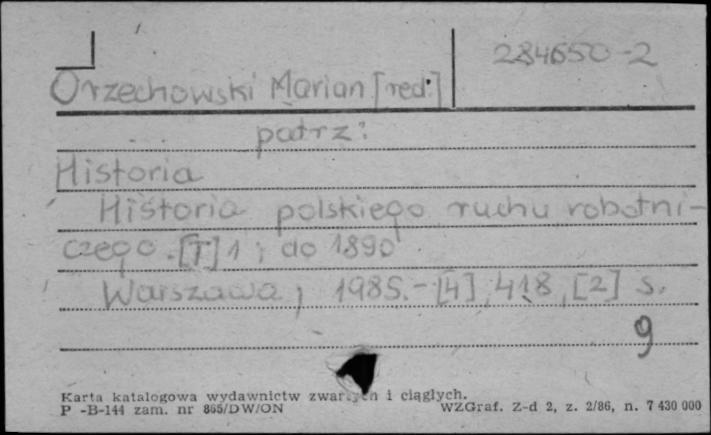 284650-2
Orzechowski Marian [red.]
patrz:
Historia
Historia polskiego ruchu robotni-
czego. [T] 1 ; do 1890
Warszawa, 1985. - [4], 418, [2] s.
9
Karta katalogowa wydawnictw zwartych i ciągłych.
P -B-144 zam. nr 865/DW/ON WZGraf. Z-d 2, z. 2/86, n. 7 430 000